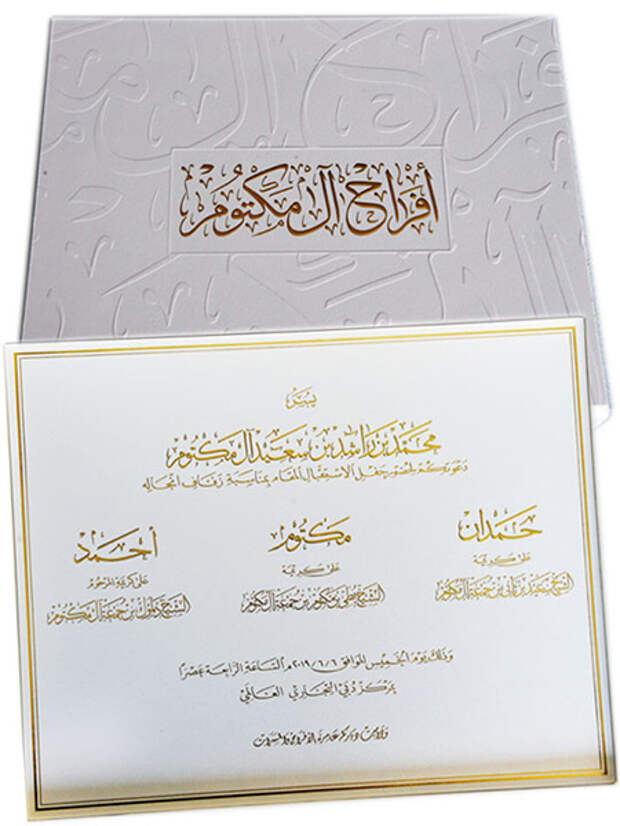 أفراح آل مكتوم
يسر
محمد بن راشد بن سعيد آل مكتوم
دعوتكم لحضور حفل الاستقبال المقام بمناسبة زفاف أنجاله
حمدان
على كريمة
الشيخ سعيد بن ثاني بن جمعة آل مكتوم
مكتوم
على كريمة
الشيخ بطي بن مكتوم بن جمعة آل مكتوم
أحمد
على كريمة المرحوم
الشيخ دلموك بن جمعة آل مكتوم
وذلك يوم الخميس الموافق ٢٠١٩/٦/٦م الساعة الرابعة عصراً
بمركز دبي التجاري العالمي
ودامت دياركم عامرة بالأفراح والمسرات